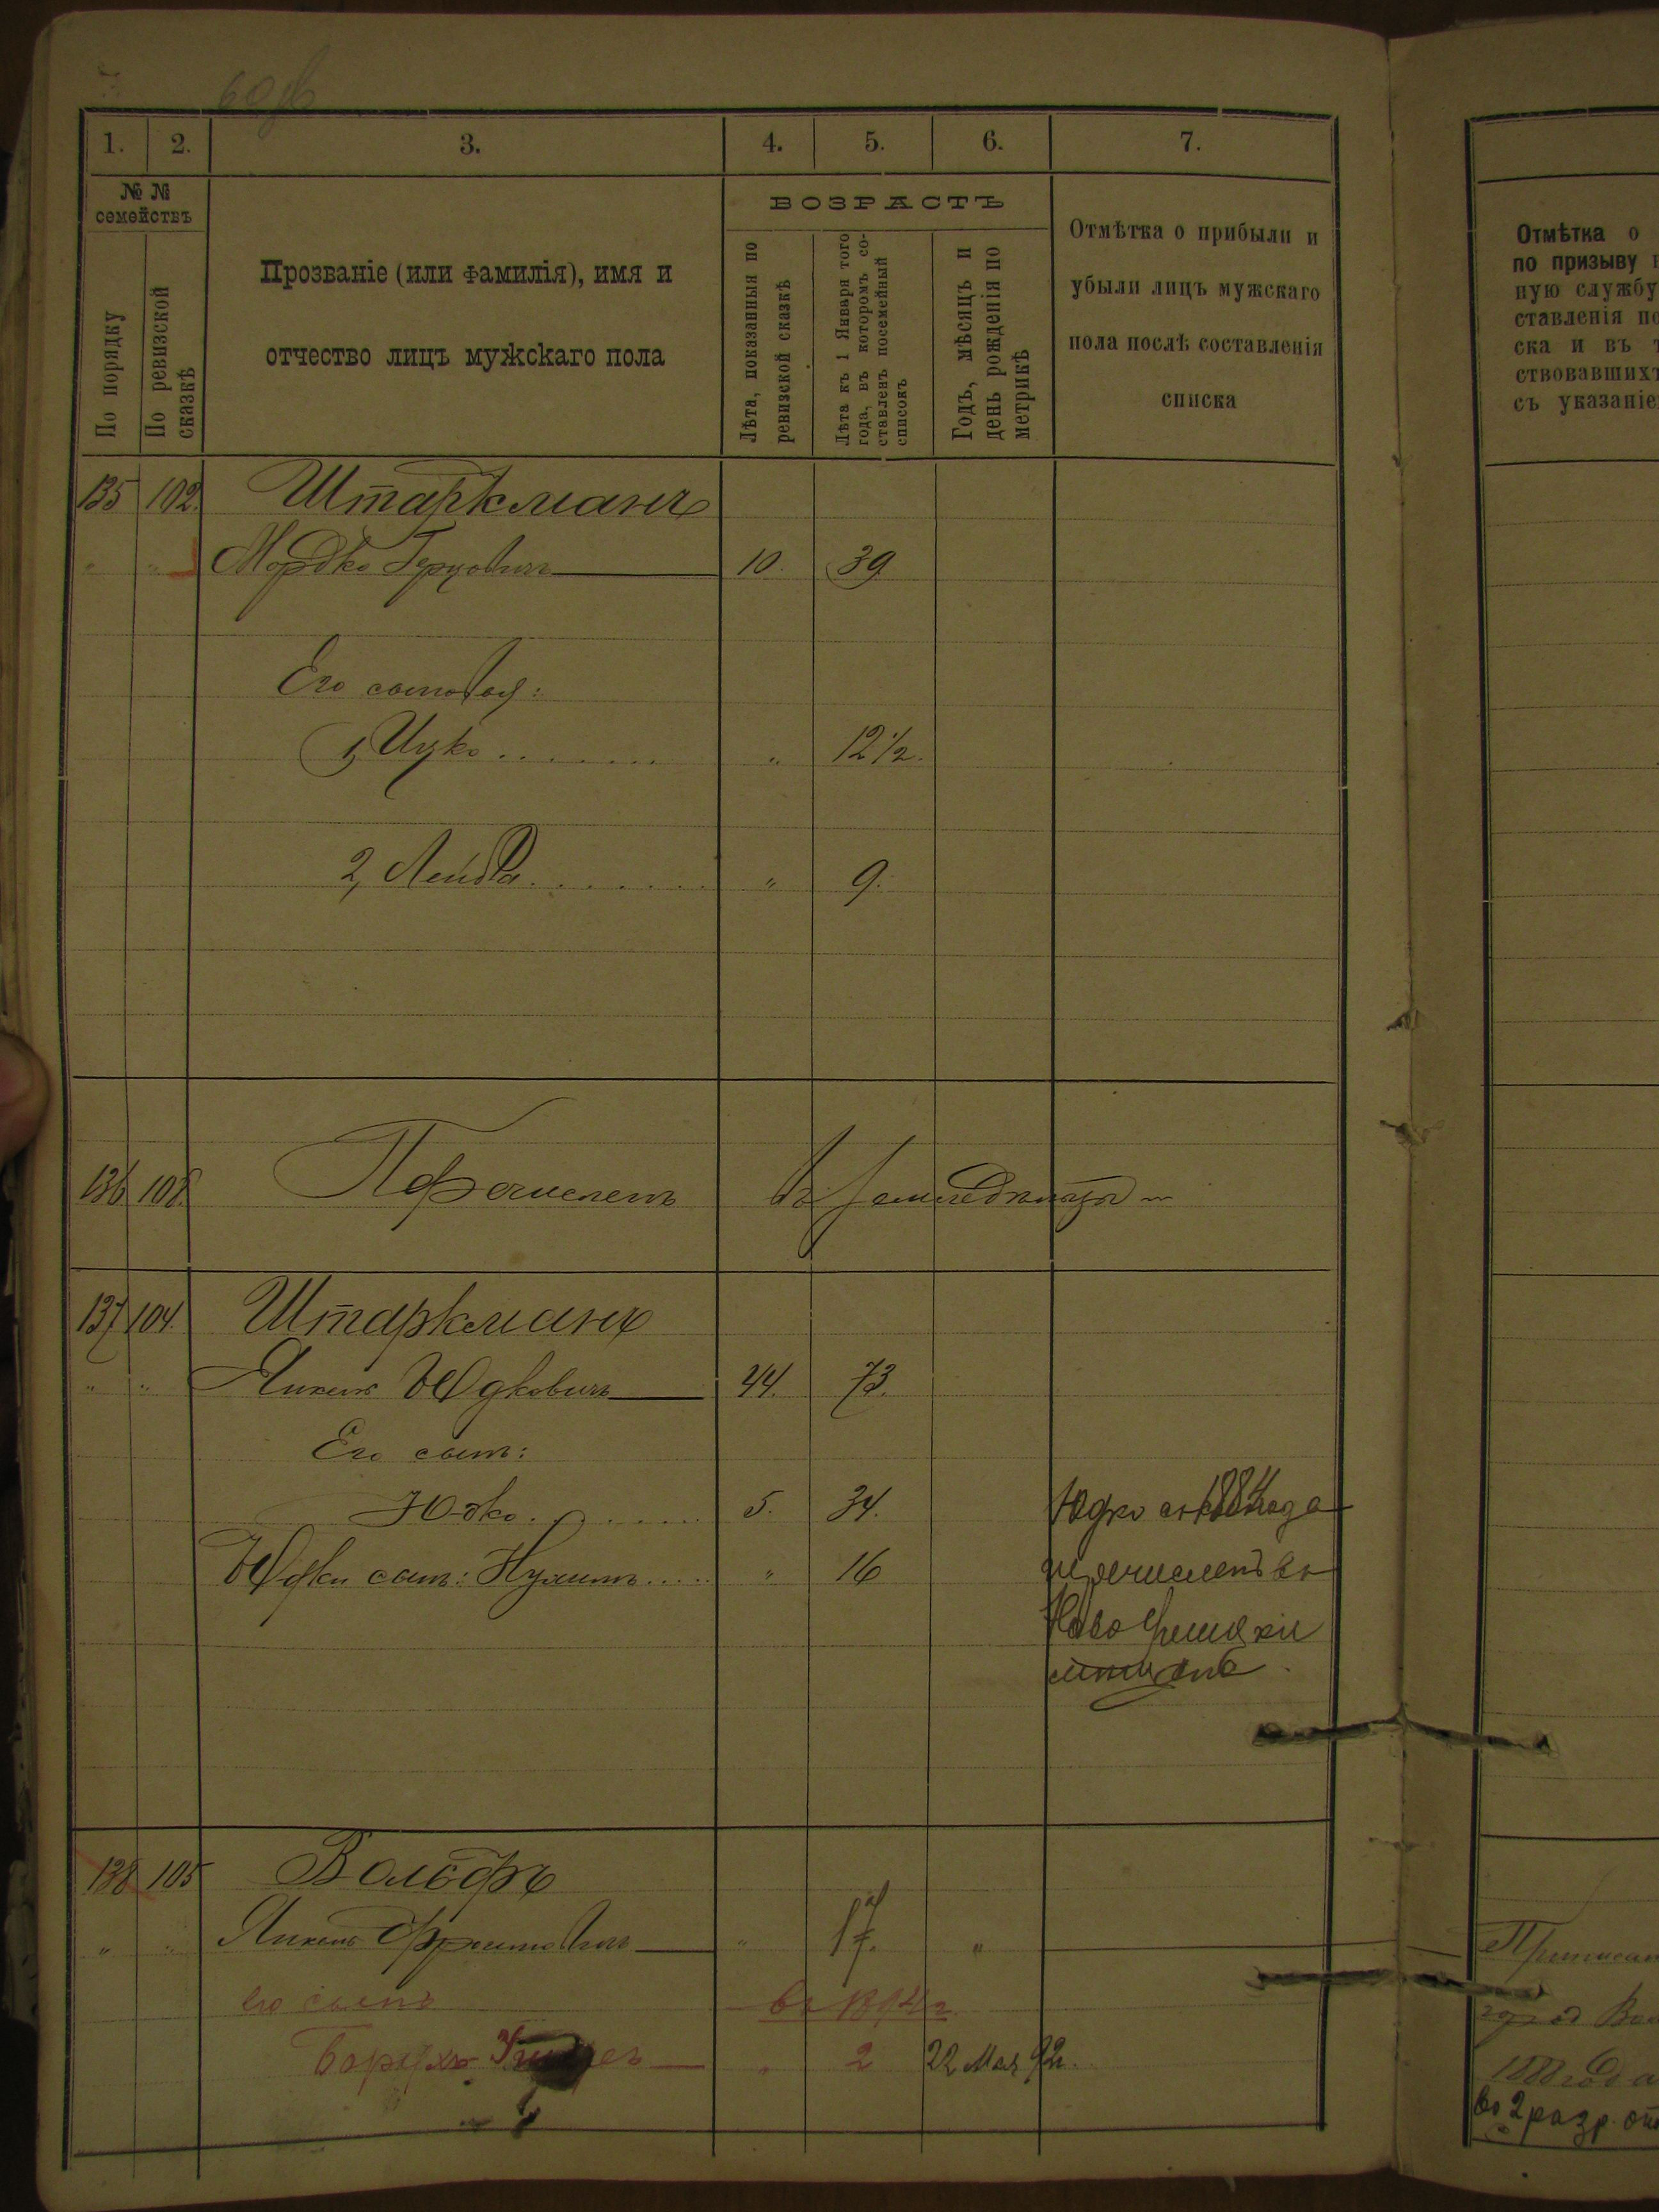 1. 2. 3. 4. 5. 6. 7.
№ №
семействъ
По порядку
По ревизской сказкѣ
Прозваніе (или фамилія), имя и
отчество лицъ мужскаго пола
ВОЗРАСТЪ
Лѣта, показанныя по
ревизской сказкѣ
Лѣта къ 1 Января того
года, въ которомъ со-
ставленъ посемейный
списокъ
Годъ, мѣсяцъ и
день рожденія по
метрикѣ
Отмѣтка о прибыли и
убыли лицъ мужскаго
пола послѣ составленія
списка
Отмѣтка о
по призыву
ную службу
ставленія
ска и въ
ствовавшихъ
съ указаніе
135 102. Штаркманъ
" " Мордко Герцовичъ 10. 39
Его сыновья:
1, Ицко " 12½.
2, Лейба " 9.
136 103. Перечисленъ въ земледѣльцы
137 104. Штаркманъ
" " Янкель Юдковичъ 44. 73.
Его сынъ:
Юдко 5. 34. Юдко съ 1884 года
Юдки сынъ: Нухимъ " 16 перечисленъ въ
138 105 Вольфъ
" " Янкель " 17. "
его сынъ
Борухъ " 2 22 Мая 92г.
во 2 разр.